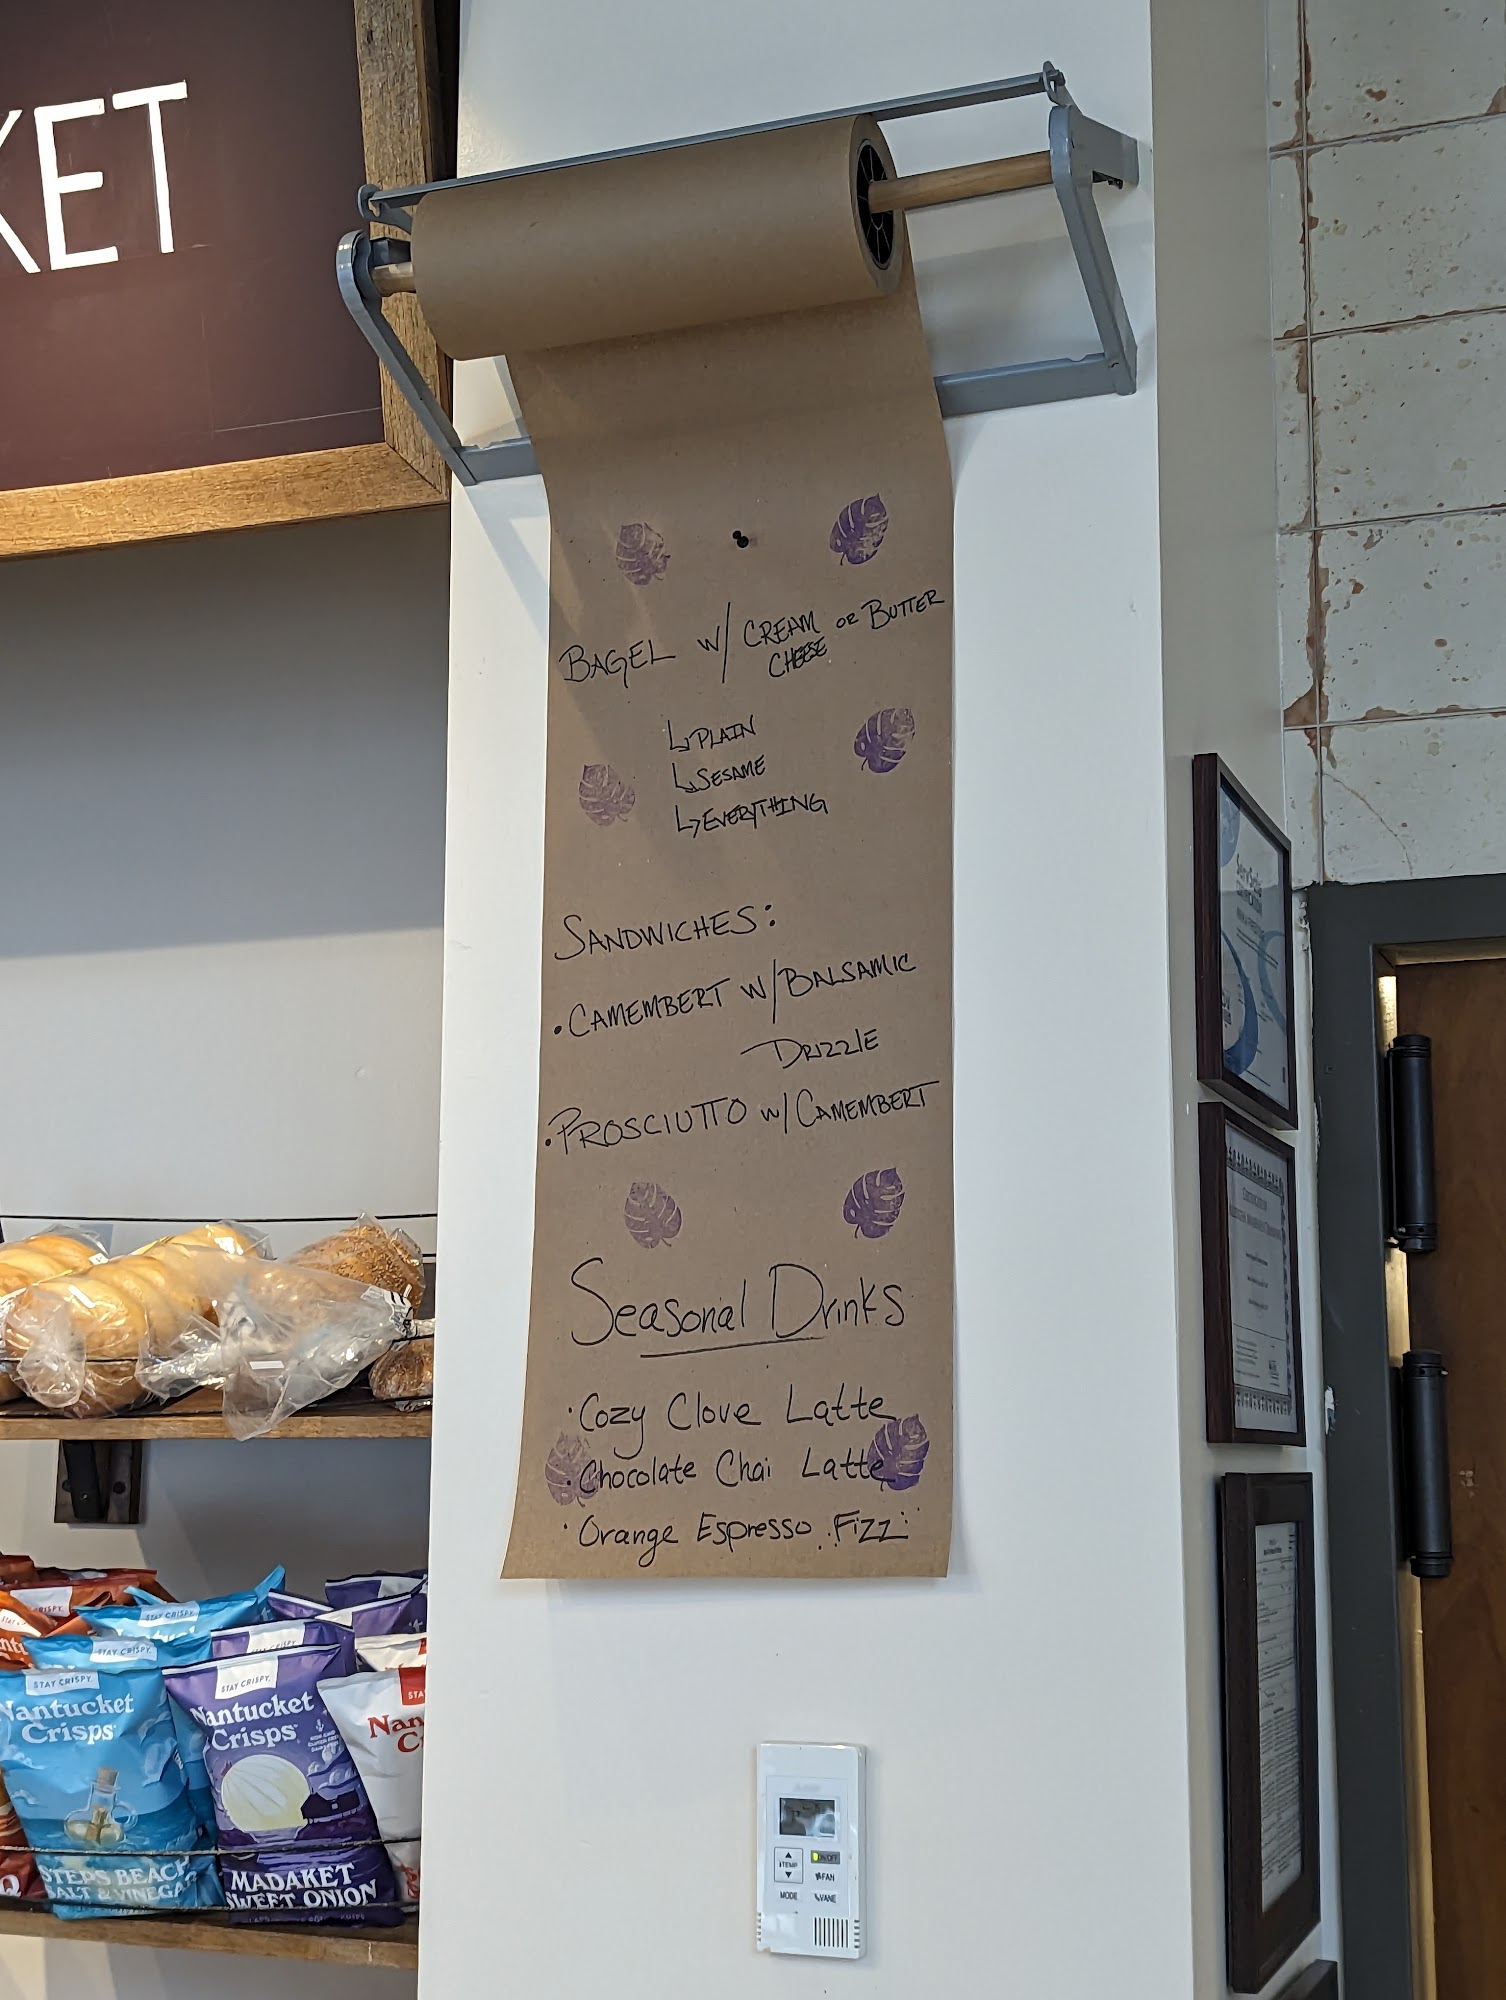 KET
BAGEL W/ CREAM CHEESE OR BUTTER
↳ PLAIN
↳ SESAME
↳ EVERYTHING
SANDWICHES:
• CAMEMBERT W/ BALSAMIC
DRIZZLE
• PROSCIUTTO W/ CAMEMBERT
Seasonal Drinks
· Cozy Clove Latte
· Chocolate Chai Latte
· Orange Espresso Fizz
STAY CRISPY.
STAY CRISPY.
STAY CRISPY.
Nantucket
Crisps
STEPS BEACH
SALT & VINEGAR
STAY CRISPY.
Nantucket
Crisps
MADAKET
SWEET ONION
STA
Nan
C
TEMP
ON/OFF
FAN
MODE
VANE
ServSafe